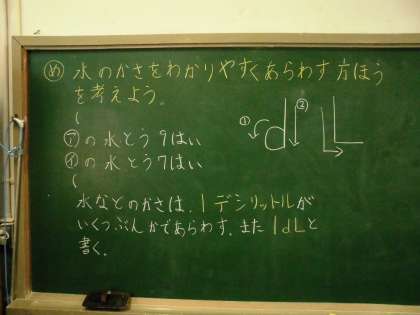 め 水のかさをわかりやすくあらわす方ほう
を考えよう。
ア の水とう9はい
イ の水とう7はい
水などのかさは、1デシリットルが
いくつぶんかであらわす。また1dLと
書く。
① ②